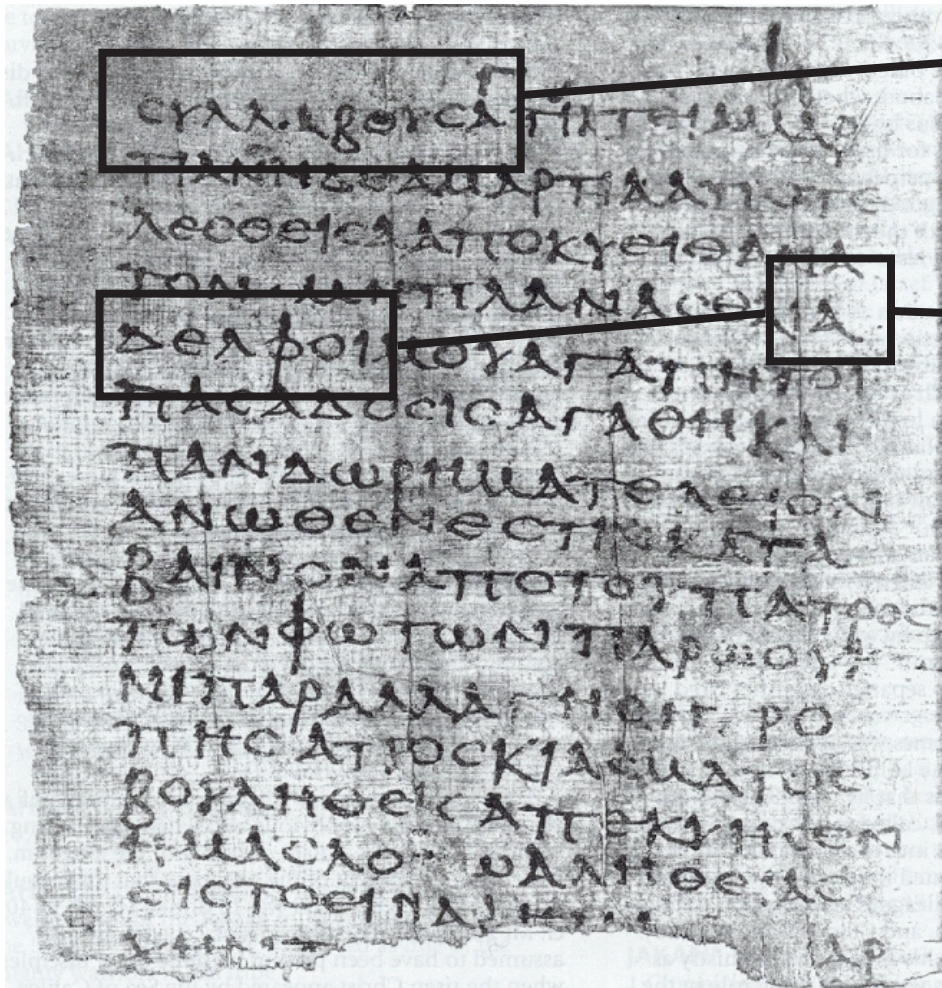 ϹΥΛΛΑΒΟΥϹΑΤΙΚΤΕΙΑΜΑΡ
ΤΙΑΝΗΔΕΑΜΑΡΤΙΑΑΠΟΤΕ
ΛΕϹΘΕΙϹΑΑΠΟΚΥΕΙΘΑΝΑ
ΤΟΝΜΗΠΛΑΝΑϹΘΑΙΑ
ΔΕΛΦΟΙΜΟΥΑΓΑΠΗΤΟΙ
ΠΑϹΑΔΟϹΙϹΑΓΑΘΗΚΑΙ
ΠΑΝΔΩΡΗΜΑΤΕΛΕΙΟΝ
ΑΝΩΘΕΝΕϹΤΙΝΚΑΤΑ
ΒΑΙΝΟΝΑΠΟΤΟΥΠΑΤΡΟϹ
ΤΩΝΦΩΤΩΝΠΑΡΩΟΥΚ
ΝΙΠΑΡΑΛΛΑΓΗϹΗΤΡΟ
ΠΗϹΑΠΟϹΚΙΑϹΜΑΤΟϹ
ΒΟΥΛΗΘΕΙϹΑΠΕΚΥΗϹΕΝ
ΗΜΑϹΛΟΓΩΑΛΗΘΕΙΑϹ
ΕΙϹΤΟΕΙΝΑΙ